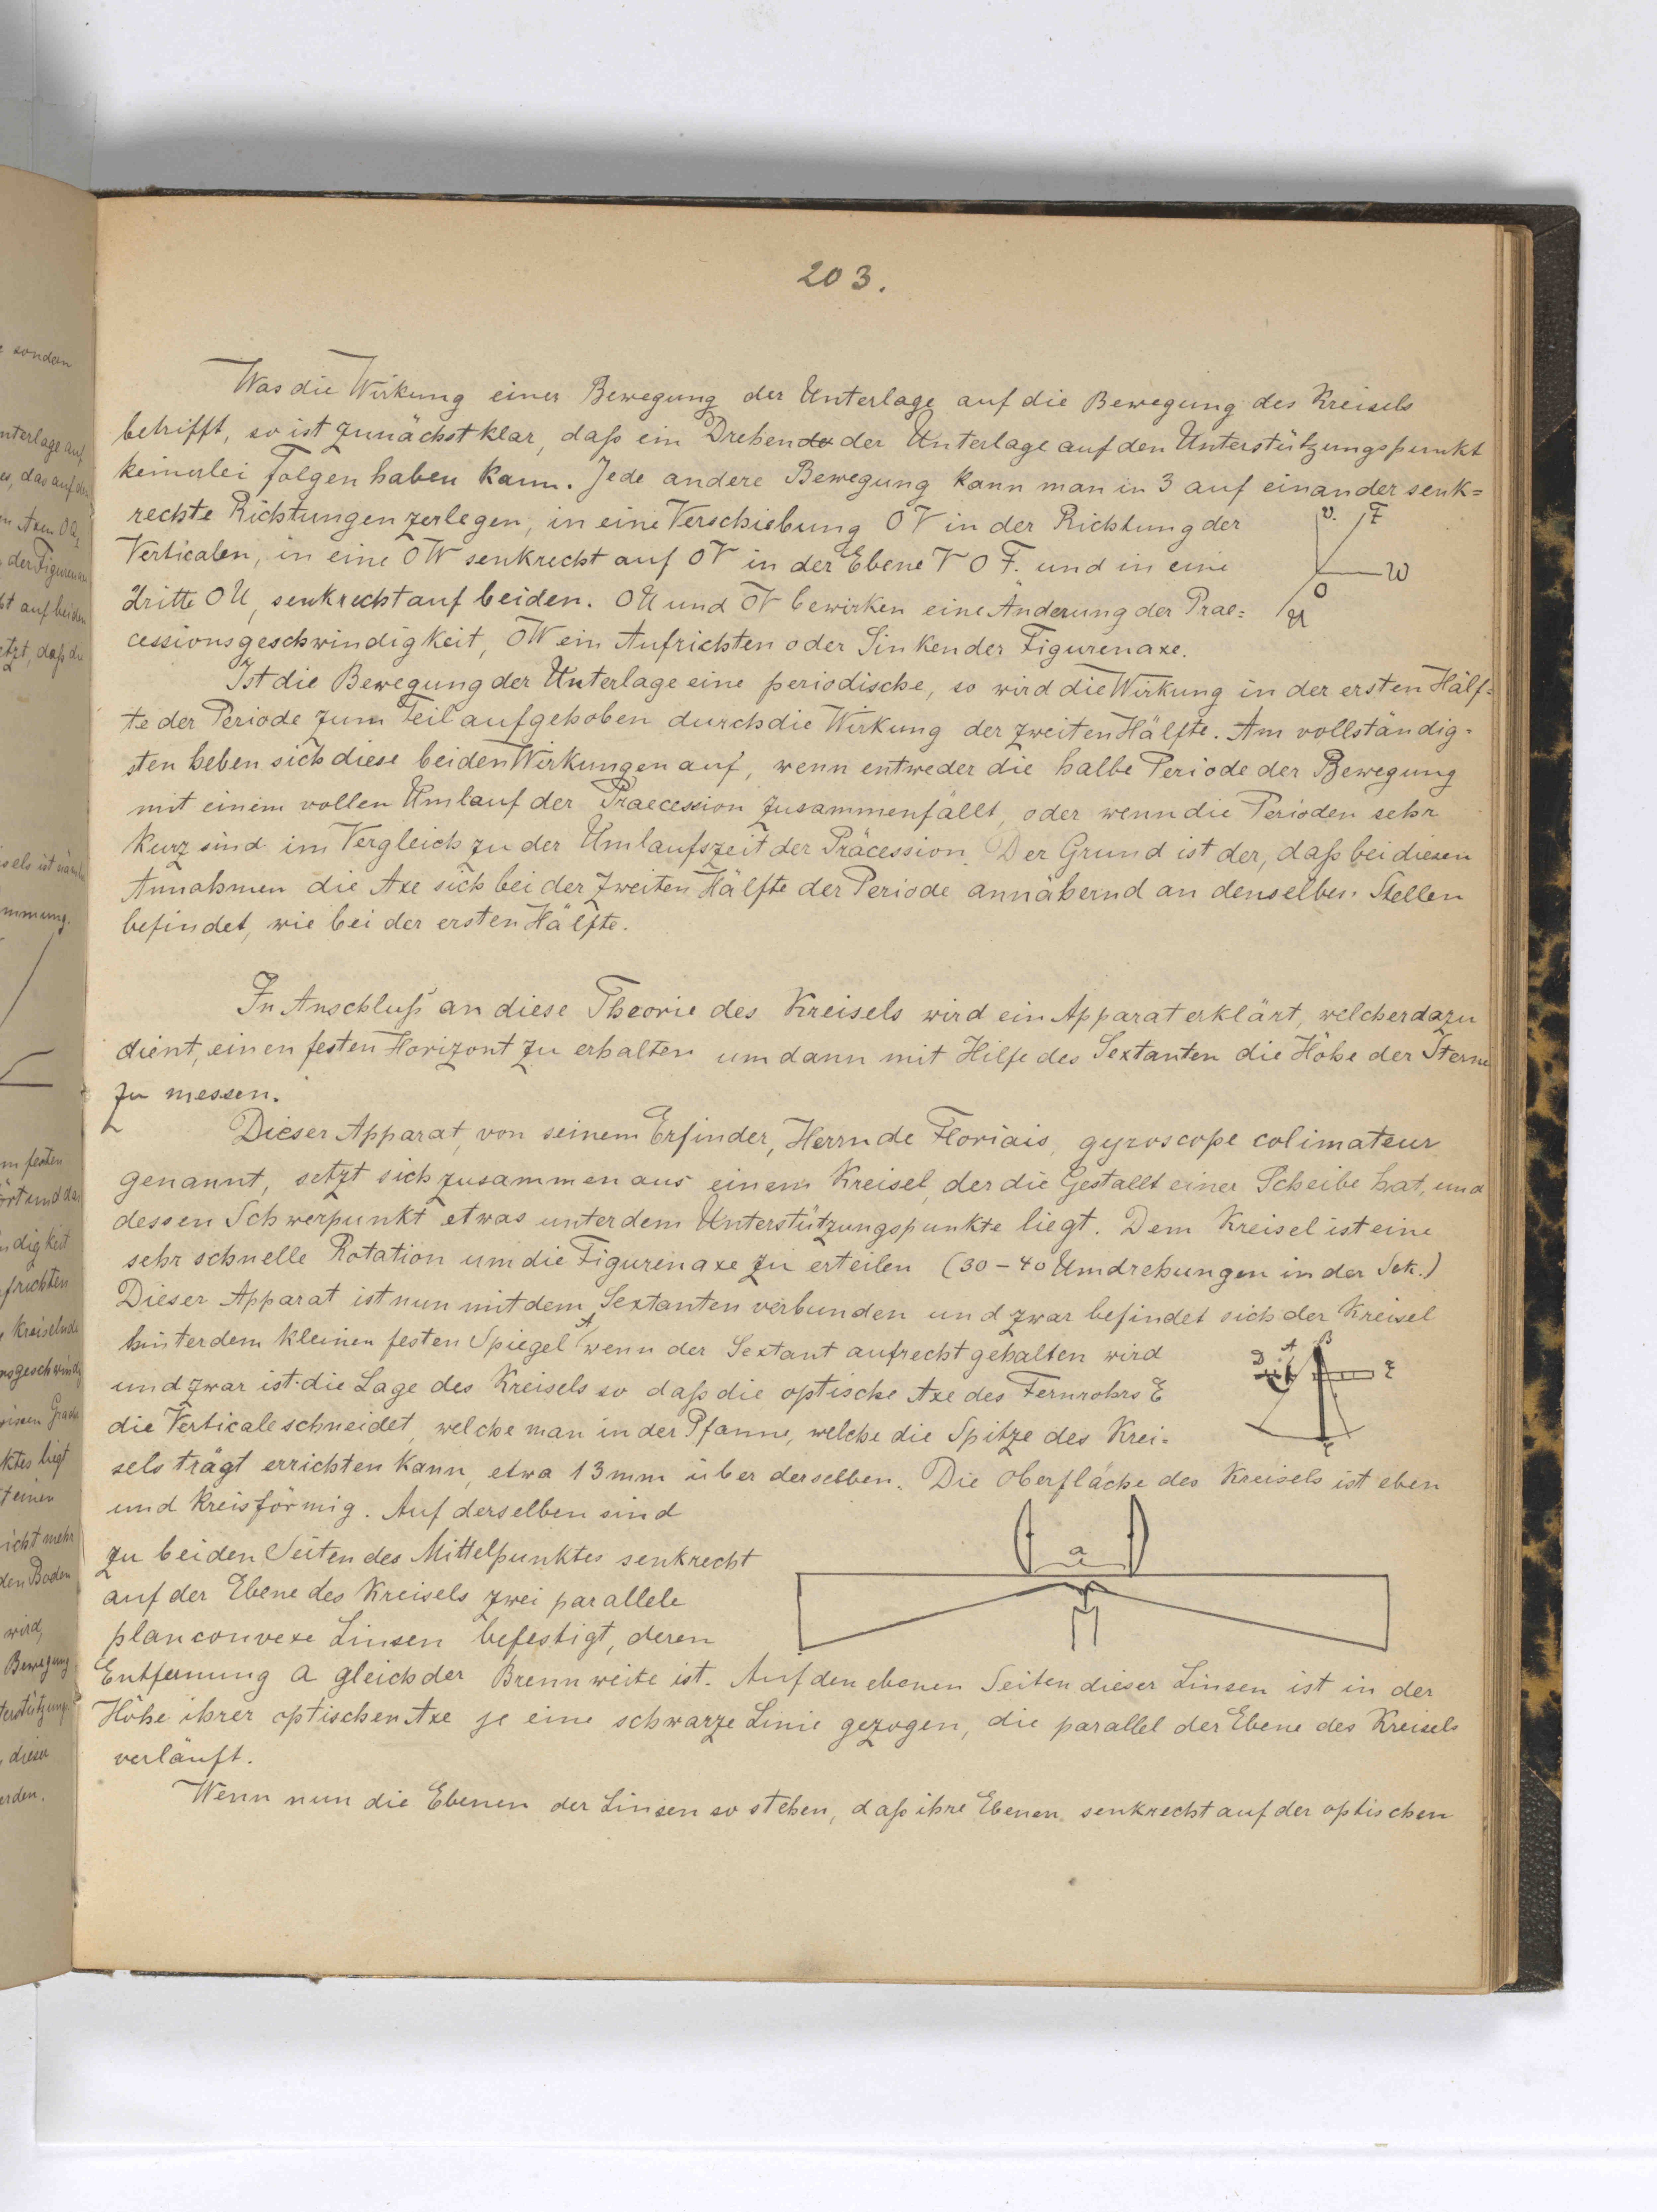 203.
Was die Wirkung einer Bewegung der Unterlage auf die Bewegung des Kreisels
betrifft, so ist zunächst klar, daß ein Drehen der Unterlage auf den Unterstützungspunkt
keinerlei Folgen haben kann. Jede andere Bewegung kann man in 3 auf einander senk=
rechte Richtungen zerlegen, in eine Verschiebung OV in der Richtung der
Verticalen, in eine OW senkrecht auf OV in der Ebene V O F. und in eine
dritte OU, senkrecht auf beiden. OU und OV bewirken eine Änderung der Prae=
cessionsgeschwindigkeit, OW ein Aufrichten oder Sinken der Figurenaxe.
V. F
W
O
U
Ist die Bewegung der Unterlage eine periodische, so wird die Wirkung in der ersten Hälf=
te der Periode zum Teil aufgehoben durch die Wirkung der zweiten Hälfte. Am vollständig=
sten heben sich diese beiden Wirkungen auf, wenn entweder die halbe Periode der Bewegung
mit einem vollen Umlauf der Praecession zusammenfällt, oder wenn die Perioden sehr
kurz sind im Vergleich zu der Umlaufszeit der Präcession. Der Grund ist der, daß bei diesen
Annahmen die Axe sich bei der zweiten Hälfte der Periode annähernd an denselben Stellen
befindet, wie bei der ersten Hälfte.
In Anschluß an diese Theorie des Kreisels wird ein Apparat erklärt, welcher dazu
dient, einen festen Horizont zu erhalten um dann mit Hilfe des Sextanten die Höhe der Sterne
zu messen.
Dieser Apparat, von seinem Erfinder, Herrn de Floriais, gyroscope colimateur
genannt, setzt sich zusammen aus einem Kreisel, der die Gestallt einer Scheibe hat, und
dessen Schwerpunkt etwas unter dem Unterstützungspunkte liegt. Dem Kreisel ist eine
sehr schnelle Rotation um die Figurenaxe zu erteilen (30 - 40 Umdrehungen in der Sek.)
Dieser Apparat ist nun mit dem Sextanten verbunden und zwar befindet sich der Kreisel
hinter dem kleinen festen Spiegel A, wenn der Sextant aufrecht gehalten wird
und zwar ist die Lage des Kreisels so daß die optische Axe des Fernrohrs E
die Verticale schneidet, welche man in der Pfanne, welche die Spitze des Krei=
sels trägt errichten kann, etwa 13 mm über derselben. Die Oberfläche des Kreisels ist eben
D A B E
C
und kreisförmig. Auf derselben sind
zu beiden Seiten des Mittelpunktes senkrecht
auf der Ebene des Kreisels zwei parallele
planconvexe Linsen befestigt, deren
a
Entfernung a gleich der Brennweite ist. Auf den ebenen Seiten dieser Linsen ist in der
Höhe ihrer optischen Axe je eine schwarze Linie gezogen, die parallel der Ebene des Kreisels
verläuft.
Wenn nun die Ebenen der Linsen so stehen, daß ihre Ebenen senkrecht auf der optischen